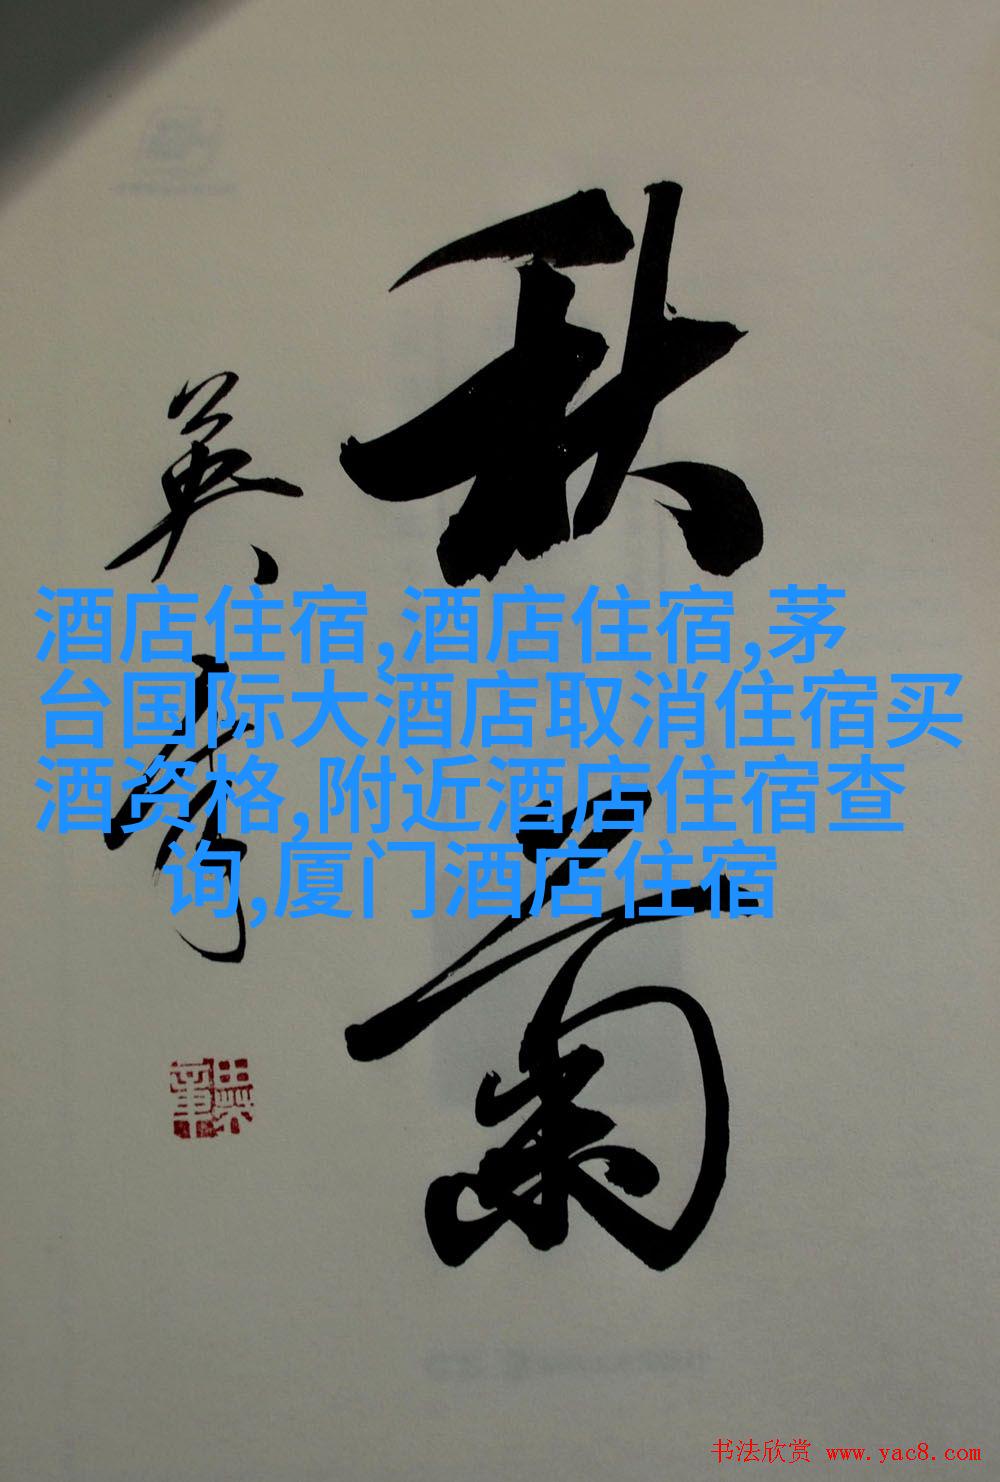 秋菊
英章
酒店住宿,酒店住宿,茅
台国际大酒店取消住宿买
酒资格,附近酒店住宿查
询,厦门酒店住宿
田英章
书法欣赏 www.yac8.com